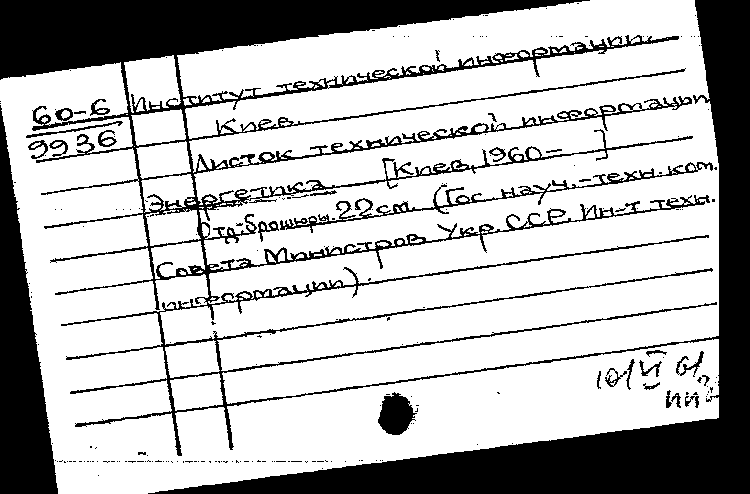 60-6
9936
Институт технической информации.
Киев.
Листок технической информации
Энергетика. [Киев, 1960- ]
Отд. брошюры. 22 см. (Гос. науч.-техн. ком.
Совета Министров Укр. ССР. Ин-т техн.
информации).
10/VI 61